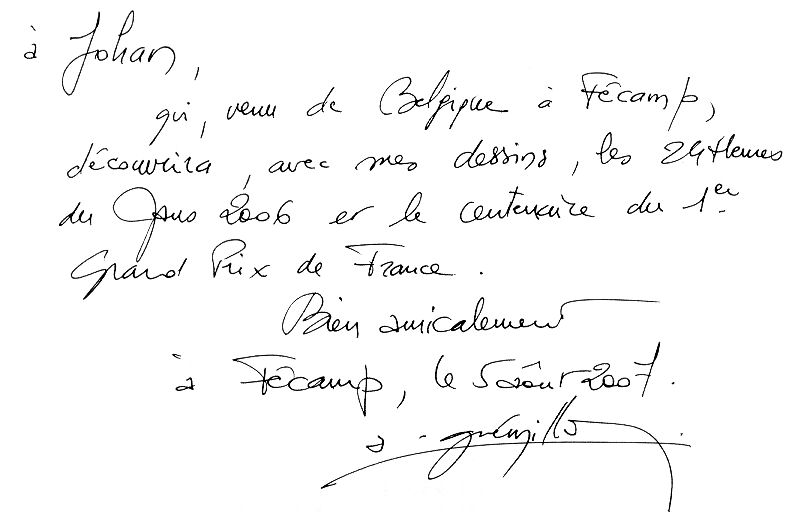 à Johan,
qui, venu de Belgique à Fécamp,
découvrira, avec mes dessins, les 24 Heures
du Mans 2006 et le centenaire du 1er
Grand Prix de France.
Bien amicalement
à Fécamp, le 5 août 2007.